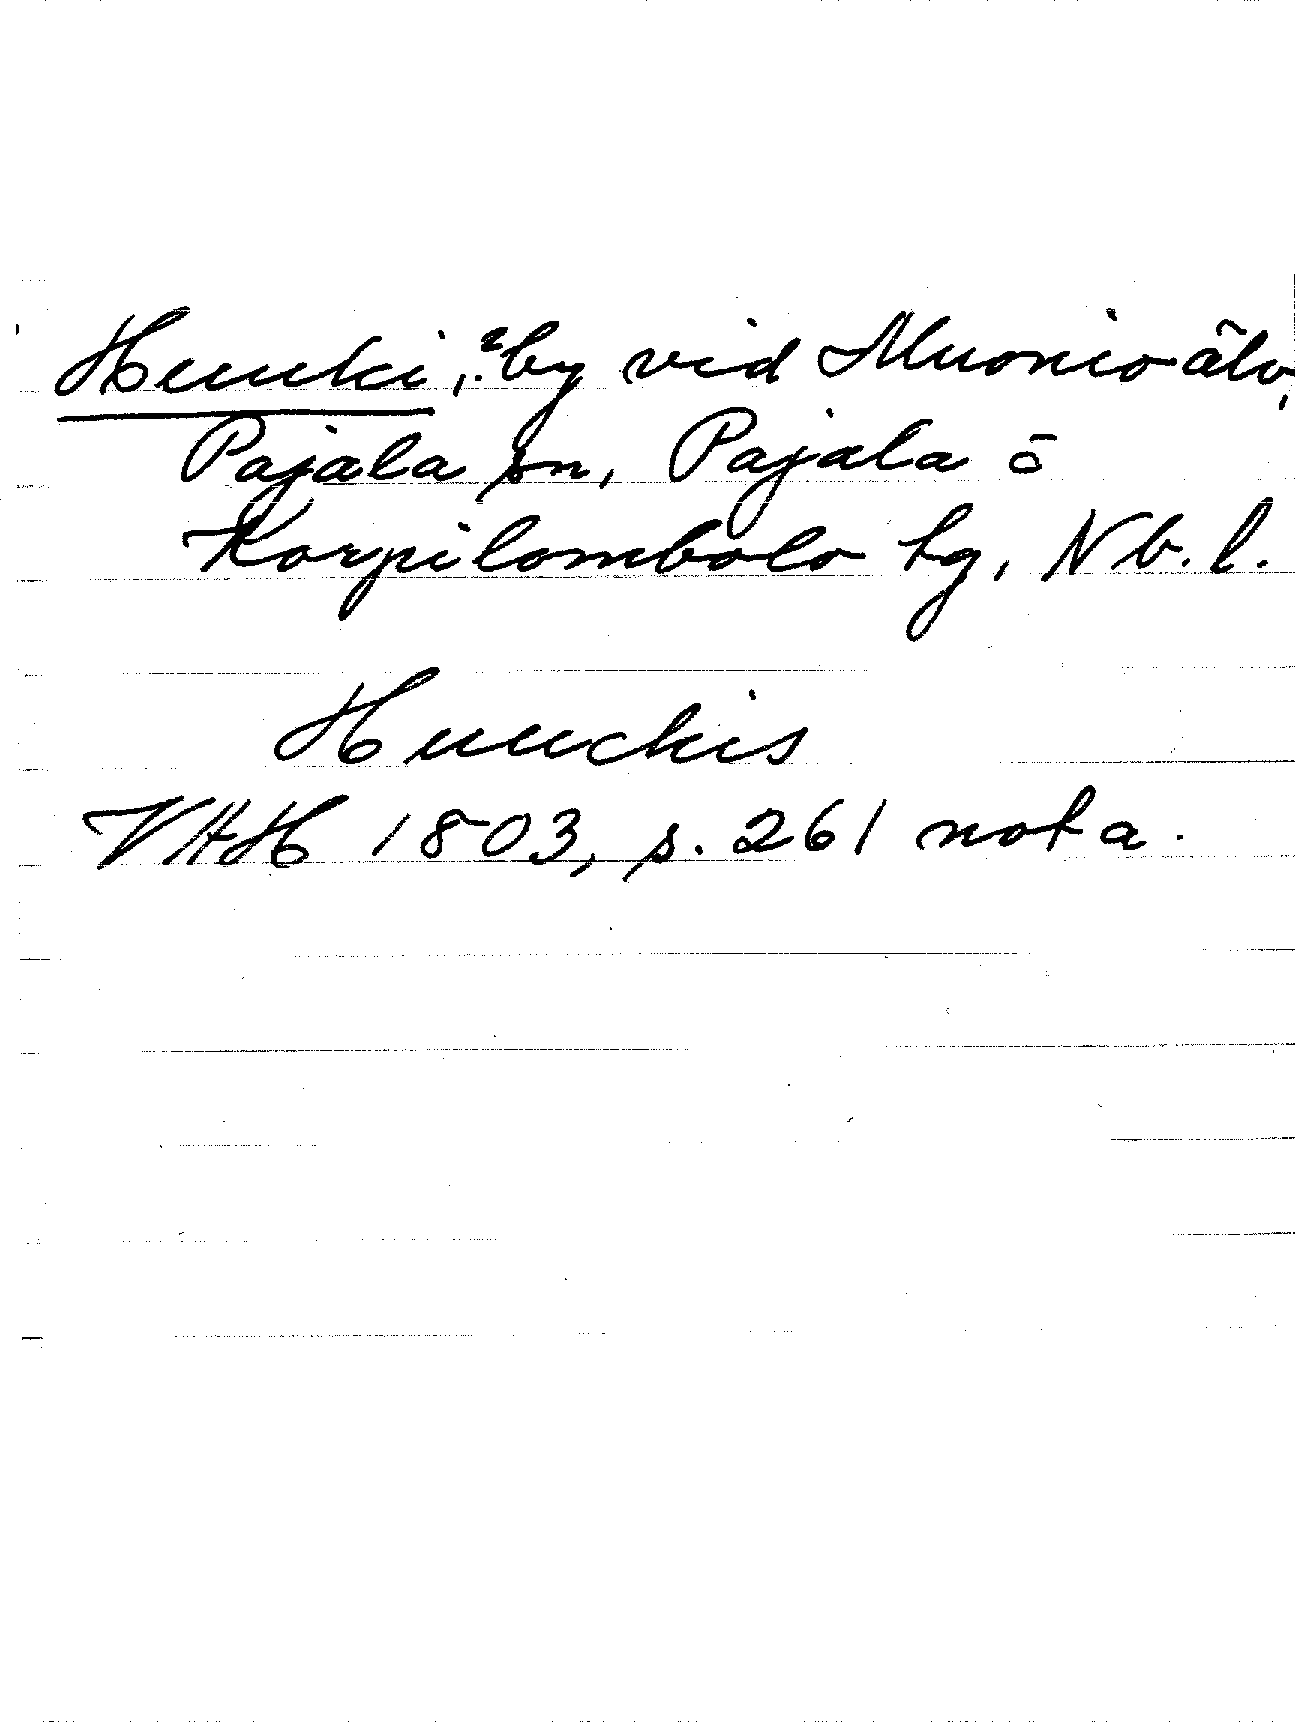 Huuki, ? by vid Muonio älv,
Pajala sn, Pajala o
Korpilombolo tg, Nb. l.
Huuckis
VHAH 1803, s. 261 nota.